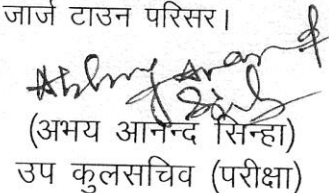 जार्ज टाउन परिसर।
(अभय आनन्द सिन्हा)
उप कुलसचिव (परीक्षा)